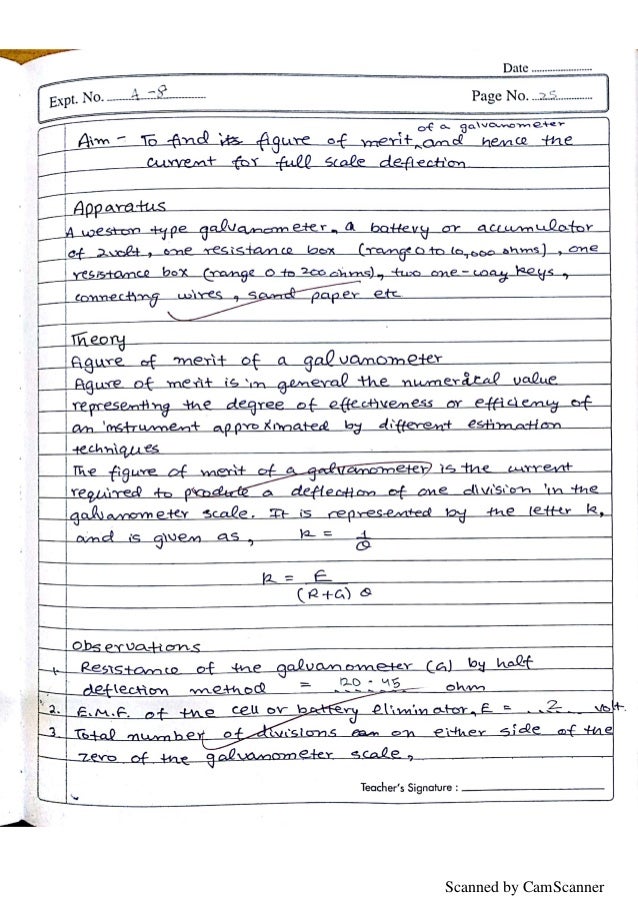 Date ........................
Expt. No. A - 8
Page No. 25
of a galvanometer
Aim - To find its figure of merit, and hence the
current for full scale deflection
Apparatus
A weston type galvanometer, a battery or accumulator
of 2volt, one resistance box (range 0 to 10,000 ohms), one
resistance box (range 0 to 200 ohms), two one-way keys,
connecting wires, sand paper etc
Theory
figure of merit of a galvanometer
figure of merit is in general the numerical value
representing the degree of effectiveness or efficiency of
an instrument approximated by different estimation
techniques
The figure of merit of a galvanometer is the current
required to produce a deflection of one division in the
galvanometer scale. It is represented by the letter k,
and is given as, k = I/θ
k = E/(R+G) θ
Observations
1. Resistance of the galvanometer (G) by half
deflection method = 120.45 ohm
2. E.M.F. of the cell or battery eliminator, E = ..2.... volt.
3. Total number of divisions on either side of the
zero of the galvanometer scale,
Teacher's Signature : ____________________
Scanned by CamScanner